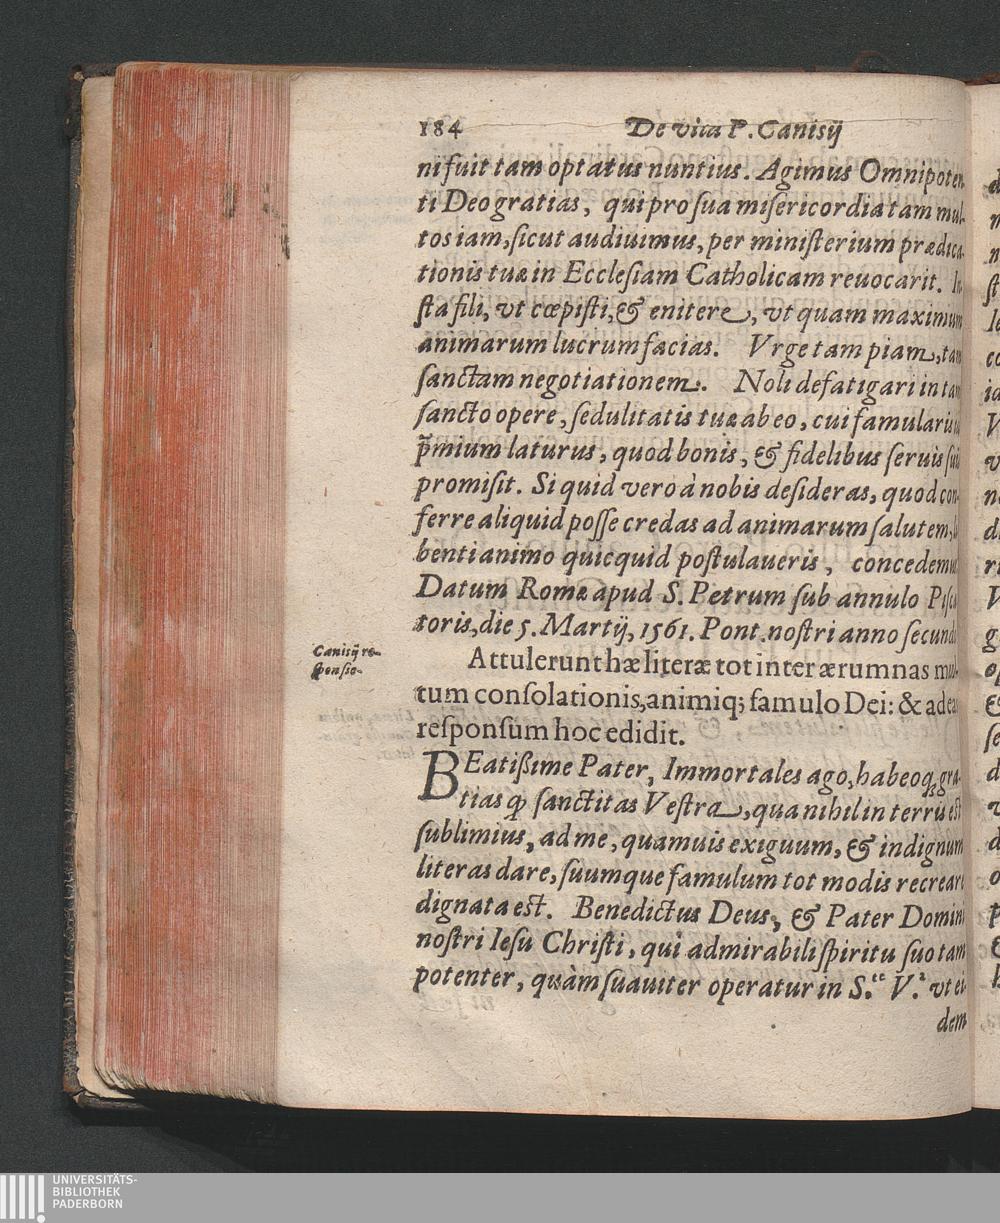 184 De vita P. Canisÿ
ni fuit tam optatus nuntius. Agimus Omnipoten
ti Deo gratias, qui pro sua misericordia tam mul-
tos iam, sicut audiuimus, per ministerium prædica-
tionis tuæ in Ecclesiam Catholicam reuocarit. In
sta fili, vt cœpisti, & enitere, vt quam maximum
animarum lucrum facias. Vrge tam piam, tam
sanctam negotiationem. Noli defatigari in tam
sancto opere, sedulitatis tuæ ab eo, cui famularis
p̃mium laturus, quod bonis, & fidelibus seruis suis
promisit. Si quid vero à nobis desideras, quod con-
ferre aliquid posse credas ad animarum salutem,
benti animo quicquid postulaueris, concedemus
Datum Romæ apud S. Petrum sub annulo Pisca
toris, die 5. Martÿ, 1561. Pont. nostri anno secundo
Canisÿ re-
sponsio.
Attulerunt hæ literæ tot inter ærumnas mul-
tum consolationis, animiq; famulo Dei: & ad eas
responsum hoc edidit.
BEatißime Pater, Immortales ago, habeoq; gra-
tias ꝙ sanctitas Vestra, qua nihil in terris est
sublimius, ad me, quamuis exiguum, & indignum
literas dare, suumque famulum tot modis recreari
dignata est. Benedictus Deus, & Pater Domini
nostri Iesu Christi, qui admirabili spiritu suo tam
potenter, quàm suauiter operatur in S.te V.a vt ei-
dem
UNIVERSITÄTS-
BIBLIOTHEK
PADERBORN